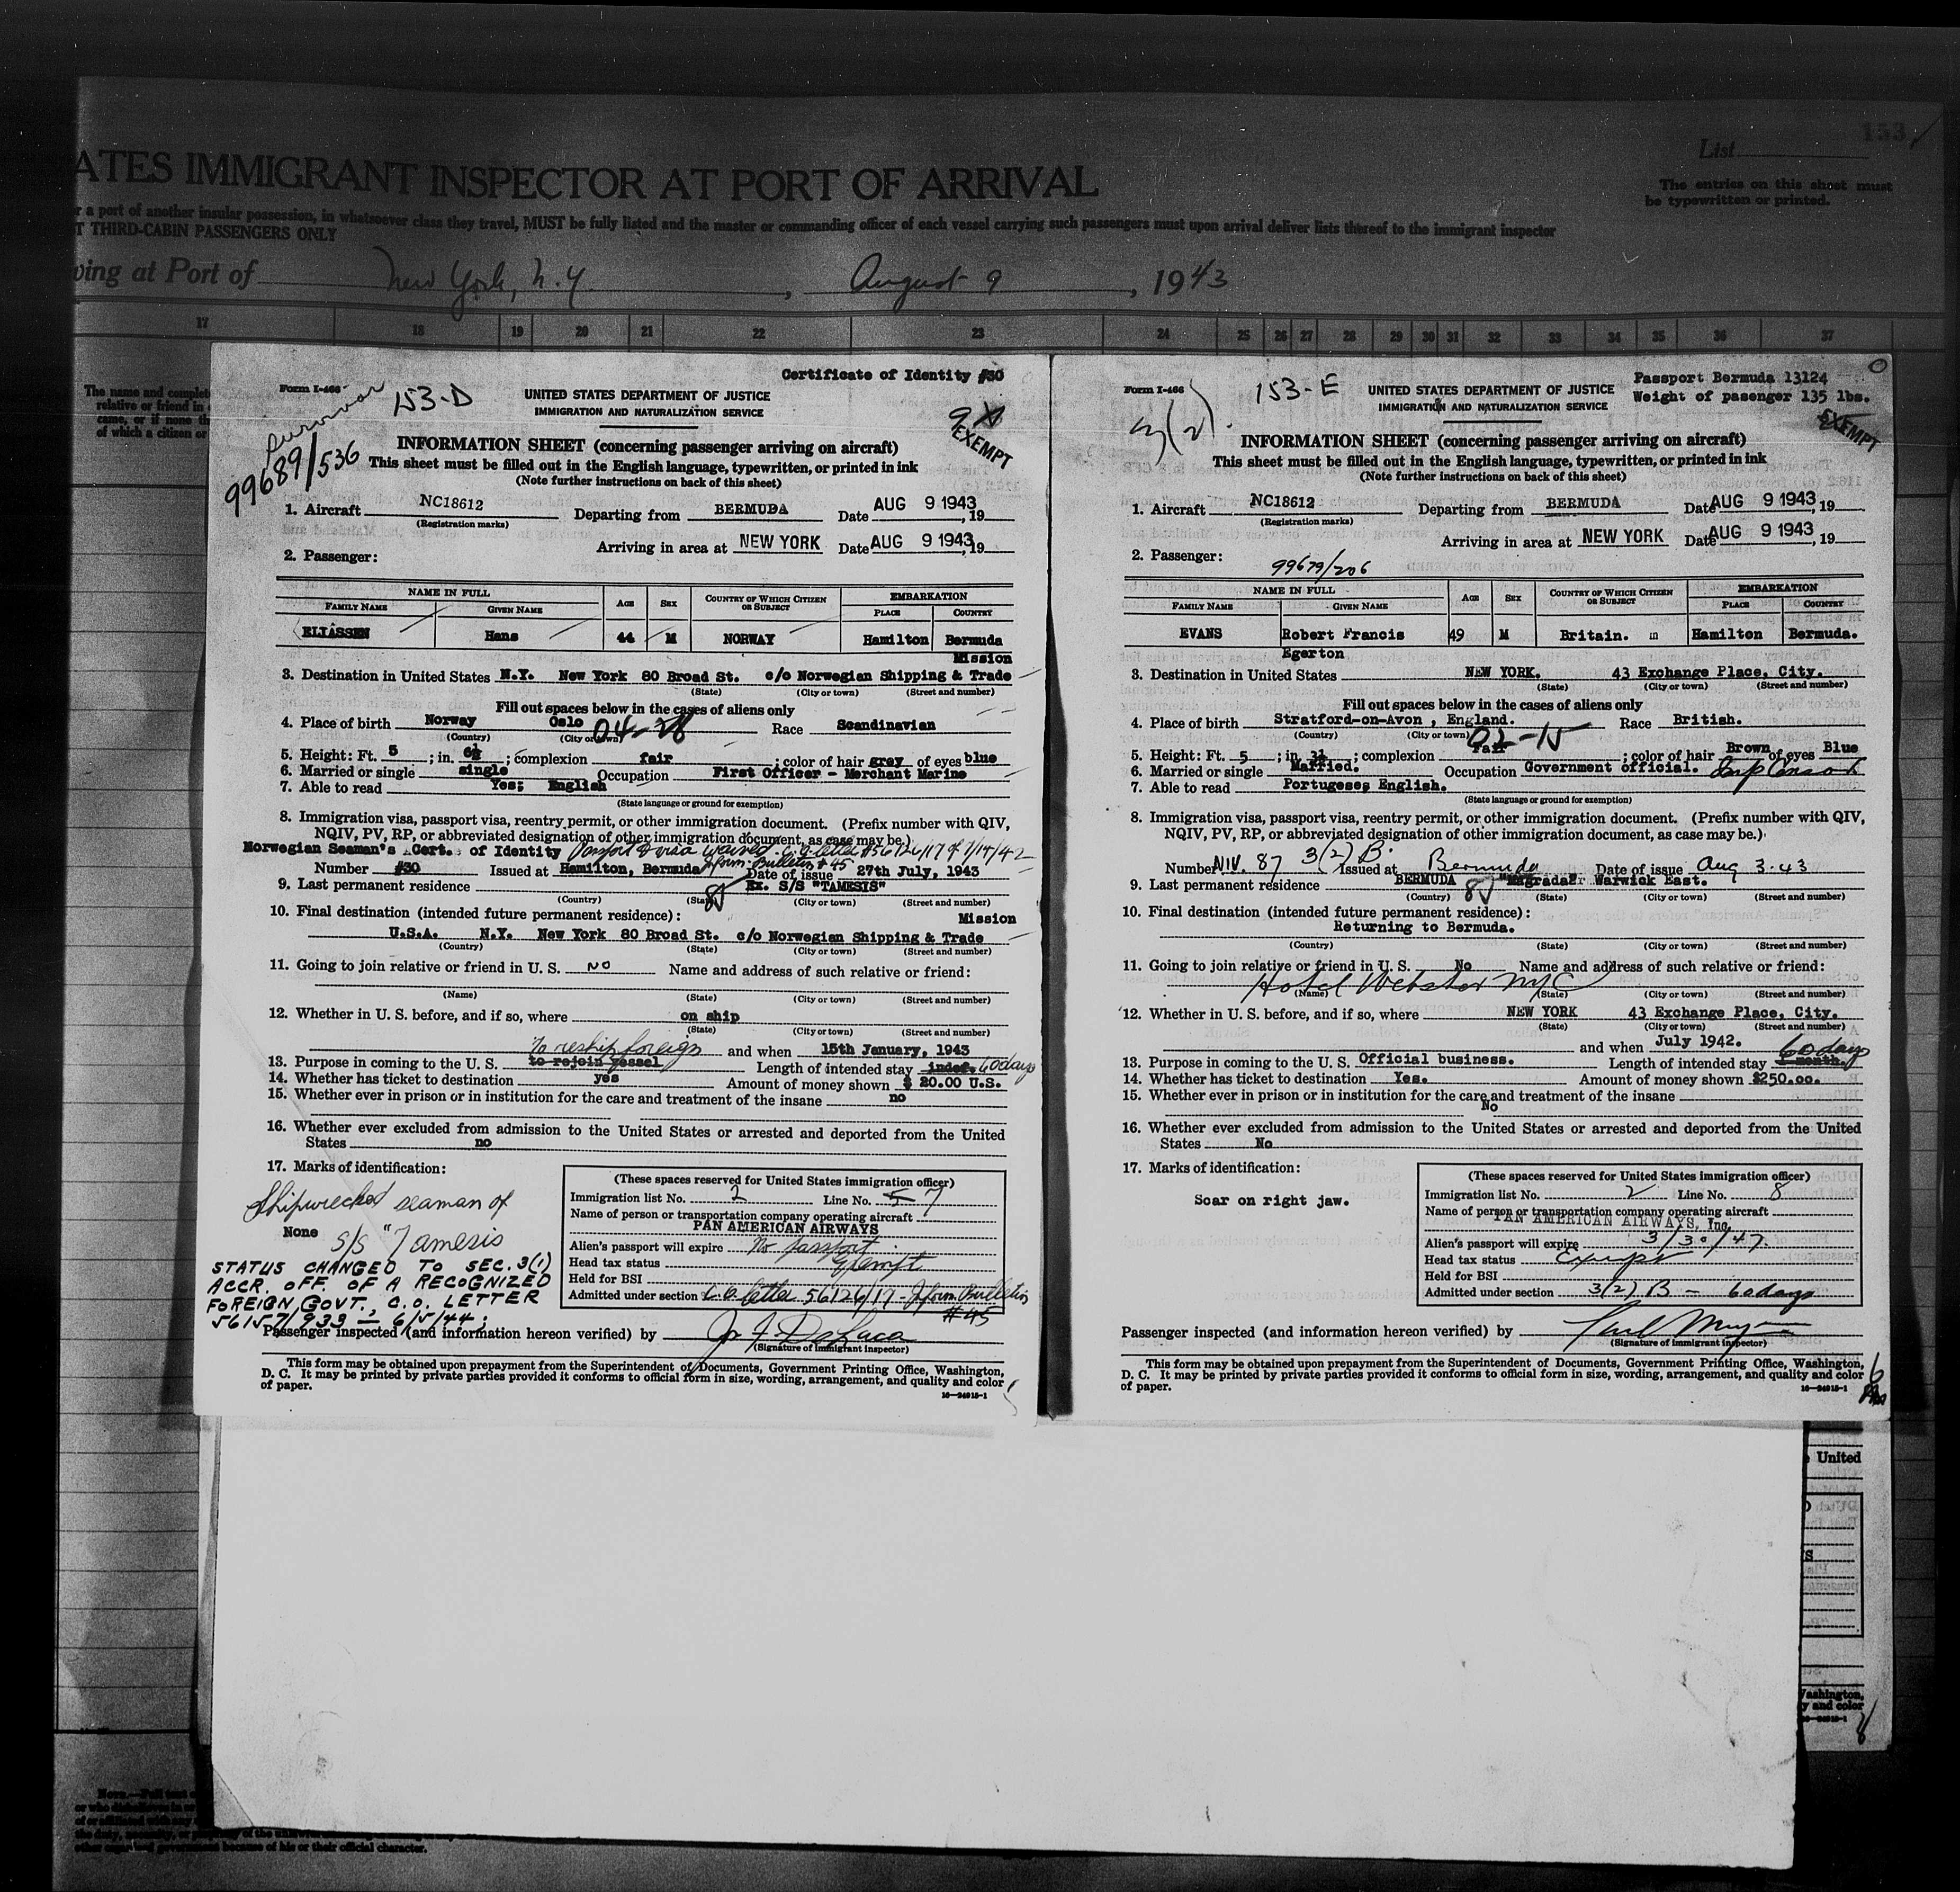 153
List
ATES IMMIGRANT INSPECTOR AT PORT OF ARRIVAL
The entries on this sheet must
be typewritten or printed.
r a port of another insular possession, in whatsoever class they travel, MUST be fully listed and the master or commanding officer of each vessel carrying such passengers must upon arrival deliver lists thereof to the immigrant inspector
T THIRD-CABIN PASSENGERS ONLY
ving at Port of New York, N.Y. , August 9 , 1943
17 18 19 20 21 22 23 24 25 26 27 28 29 30 31 32 33 34 35 36 37
The name and complet
relative or friend in
came, or if none th
of which a citizen or
Certificate of Identity #30
Form I-466
Survivor
153-D
99689/536
UNITED STATES DEPARTMENT OF JUSTICE
IMMIGRATION AND NATURALIZATION SERVICE
EXEMPT
INFORMATION SHEET (concerning passenger arriving on aircraft)
This sheet must be filled out in the English language, typewritten, or printed in ink
(Note further instructions on back of this sheet)
1. Aircraft NC18612 Departing from BERMUDA Date AUG 9 1943, 19
(Registration marks)
Arriving in area at NEW YORK Date AUG 9 1943, 19
2. Passenger:
NAME IN FULL AGE SEX COUNTRY OF WHICH CITIZEN OR SUBJECT EMBARKATION
FAMILY NAME GIVEN NAME PLACE COUNTRY
ELIASSEN Hans 44 M NORWAY Hamilton Bermuda
Mission
3. Destination in United States N.Y. New York 80 Broad St. c/o Norwegian Shipping & Trade
(State) (City or town) (Street and number)
Fill out spaces below in the cases of aliens only
4. Place of birth Norway Oslo 04-28 Race Scandinavian
(Country) (City or town)
5. Height: Ft. 5 ; in. 6½ ; complexion fair ; color of hair grey of eyes blue
6. Married or single single Occupation First Officer - Merchant Marine
7. Able to read Yes; English
(State language or ground for exemption)
8. Immigration visa, passport visa, reentry permit, or other immigration document. (Prefix number with QIV,
NQIV, PV, RP, or abbreviated designation of other immigration document, as case may be.)
Norwegian Seaman's Cert. of Identity Passport & visa waived. C.O. letter #56126/17 of 7/14/42
Inform. Bulletin #45
Number #30 Issued at Hamilton, Bermuda Date of issue 27th July, 1943
9. Last permanent residence Ex. S/S "TAMESIS"
(Country) (State) (City or town) (Street and number)
10. Final destination (intended future permanent residence):
Mission
U.S.A. N.Y. New York 80 Broad St. c/o Norwegian Shipping & Trade
(Country) (State) (City or town) (Street and number)
11. Going to join relative or friend in U. S. NO Name and address of such relative or friend:
(Name) (State) (City or town) (Street and number)
12. Whether in U. S. before, and if so, where on ship
(State) (City or town) (Street and number)
To reship foreign and when 15th January, 1943
13. Purpose in coming to the U. S. to rejoin vessel Length of intended stay indef. 60 days
14. Whether has ticket to destination yes Amount of money shown $ 20.00 U.S.
15. Whether ever in prison or in institution for the care and treatment of the insane no
16. Whether ever excluded from admission to the United States or arrested and deported from the United
States no
17. Marks of identification:
Shipwrecked seaman of
None
S/S "Tamesis
STATUS CHANGED TO SEC. 3(1)
ACCR. OFF. OF A RECOGNIZED
FOREIGN GOVT., C.O. LETTER
56157/933 — 6/5/44;
(These spaces reserved for United States immigration officer)
Immigration list No. 2 Line No. 5 7
Name of person or transportation company operating aircraft
PAN AMERICAN AIRWAYS
Alien's passport will expire No passport.
Head tax status Exempt
Held for BSI
Admitted under section C.O. letter 56126/17 - Inform Bulletin
#45
Passenger inspected (and information hereon verified) by
(Signature of immigrant inspector)
This form may be obtained upon prepayment from the Superintendent of Documents, Government Printing Office, Washington,
D. C. It may be printed by private parties provided it conforms to official form in size, wording, arrangement, and quality and color
of paper.
16—24915-1
Form I-466
153-E
UNITED STATES DEPARTMENT OF JUSTICE
IMMIGRATION AND NATURALIZATION SERVICE
Passport Bermuda 13124
Weight of pasenger 135 lbs.
EXEMPT
INFORMATION SHEET (concerning passenger arriving on aircraft)
This sheet must be filled out in the English language, typewritten, or printed in ink
(Note further instructions on back of this sheet)
1. Aircraft NC18612 Departing from BERMUDA Date AUG 9 1943, 19
(Registration marks)
Arriving in area at NEW YORK Date AUG 9 1943, 19
2. Passenger:
99679/206
NAME IN FULL AGE SEX COUNTRY OF WHICH CITIZEN OR SUBJECT EMBARKATION
FAMILY NAME GIVEN NAME PLACE COUNTRY
EVANS Robert Francis 49 M Britain. Hamilton Bermuda.
Egerton
3. Destination in United States NEW YORK. 43 Exchange Place, City.
(State) (City or town) (Street and number)
Fill out spaces below in the cases of aliens only
4. Place of birth Stratford-on-Avon , England. 02-15 Race British.
(Country) (City or town)
5. Height: Ft. 5 ; in. 3½ ; complexion Fair ; color of hair Brown of eyes Blue
6. Married or single Married. Occupation Government official.
7. Able to read Portugese, English.
(State language or ground for exemption)
8. Immigration visa, passport visa, reentry permit, or other immigration document. (Prefix number with QIV,
NQIV, PV, RP, or abbreviated designation of other immigration document, as case may be.)
Number NIV. 87 3(2) B. Issued at Bermuda Date of issue Aug 3-43
9. Last permanent residence BERMUDA Warwick East.
(Country) (State) (City or town) (Street and number)
10. Final destination (intended future permanent residence):
Returning to Bermuda.
(Country) (State) (City or town) (Street and number)
11. Going to join relative or friend in U. S. No Name and address of such relative or friend:
Hotel Webster NYC
(Name) (State) (City or town) (Street and number)
12. Whether in U. S. before, and if so, where NEW YORK 43 Exchange Place, City.
(State) (City or town) (Street and number)
and when July 1942.
13. Purpose in coming to the U. S. Official business. Length of intended stay 1 month. 60 days
14. Whether has ticket to destination Yes. Amount of money shown $250.00.
15. Whether ever in prison or in institution for the care and treatment of the insane
No
16. Whether ever excluded from admission to the United States or arrested and deported from the United
States No
17. Marks of identification:
Scar on right jaw.
(These spaces reserved for United States immigration officer)
Immigration list No. 2 Line No. 8
Name of person or transportation company operating aircraft
PAN AMERICAN AIRWAYS, Inc.
Alien's passport will expire 3/30/47.
Head tax status Exempt
Held for BSI
Admitted under section 3(2) B — 60 days
Passenger inspected (and information hereon verified) by
(Signature of immigrant inspector)
This form may be obtained upon prepayment from the Superintendent of Documents, Government Printing Office, Washington,
D. C. It may be printed by private parties provided it conforms to official form in size, wording, arrangement, and quality and color
of paper.
16—24915-1
United
ashington,
y and color
other
official character.